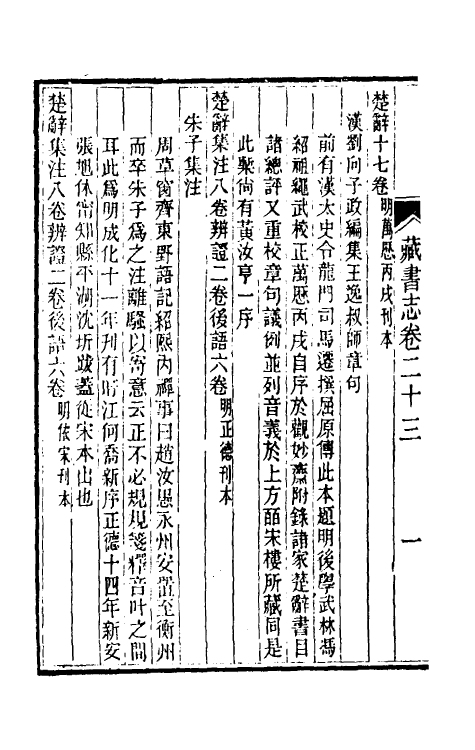 藏書志卷二十三　一
楚辭十七卷 明萬厯丙戌刊本
漢劉向子政編集王逸叔師章句
前有漢太史令龍門司馬遷撰屈原傳此本題明後學武林馮
紹祖繩武校正萬厯丙戌自序於觀妙齋附錄諸家楚辭書目
諸總評又重校章句議例並列音義於上方皕宋樓所藏同是
此槧尙有黃汝亨一序
楚辭集注八卷辨證二卷後語六卷 明正德刊本
朱子集注
周草窗齊東野語記紹熙內禪事曰趙汝愚永州安置至衡州
而卒朱子爲之注離騷以寄意云正不必規規箋釋音叶之間
耳此爲明成化十一年刊有盱江何喬新序正德十四年新安
張旭休甯知縣平湖沈圻跋蓋從宋本出也
楚辭集注八卷辨證二卷後語六卷 明依宋刊本